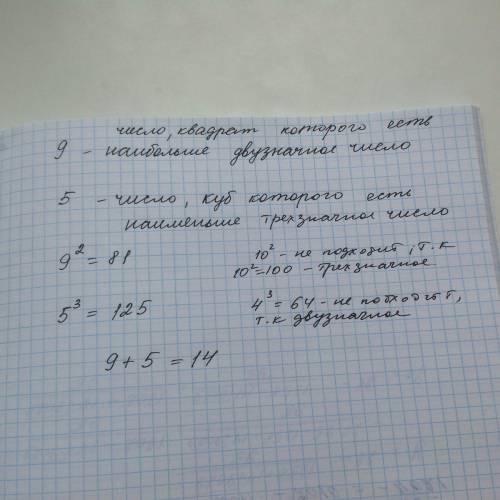 число, квадрат которого есть
9 - наибольше двузначное число
5 - число, куб которого есть
наименьше трехзначное число
9² = 81
10² - не подходит, т.к
10² = 100 - трехзначное
5³ = 125
4³ = 64 - не подходит,
т.к двузначное
9 + 5 = 14